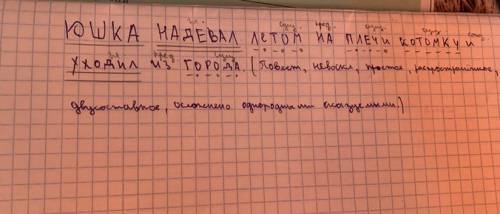 гл. сущ. пред. сущ. сущ. союз
ЮШКА НАДЕВАЛ ЛЕТОМ НА ПЛЕЧИ КОТОМКУ И
гл. пред. сущ.
УХОДИЛ ИЗ ГОРОДА. (Повест, невоскл, простое, распространённое,
двусоставное, осложнено однородными сказуемыми)